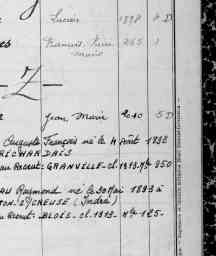 Lucien 1898 8 D
es Francois, Pierre 265 1
Marie
- Z -
Jean Marie 2040 5 D
Auguste François né le 4 Août 1893
RÉCHARDAIS
au Recrut: GRANVILLE - cl. 1913 - N° 850
AU Raymond né le 30 Mai 1893 à
ON S/CREUSE (Indre)
au Recrut: BLOIS - cl. 1913 - N° 125 -